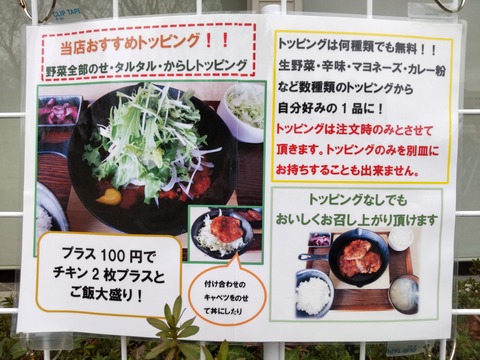 CLIP TAPE
当店おすすめトッピング！！
野菜全部のせ・タルタル・からしトッピング
プラス100円で
チキン2枚プラスと
ご飯大盛り！
付け合わせの
キャベツをのせ
て丼にしたり
トッピングは何種類でも無料！！
生野菜・辛味・マヨネーズ・カレー粉
など数種類のトッピングから
自分好みの1品に！
トッピングは注文時のみとさせて
頂きます。トッピングのみを別皿に
お持ちすることも出来ません。
トッピングなしでも
おいしくお召し上がり頂けます